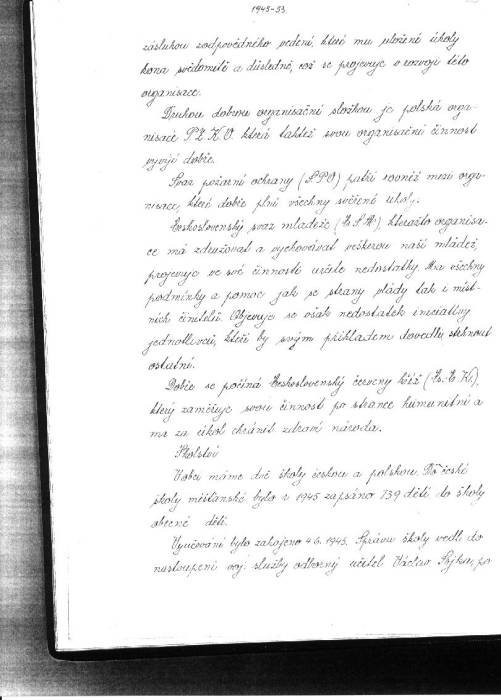 1945-53.
zásluhou zodpovědného vedení, které mu uložené úkoly
koná svědomitě a důsledně, což se projevuje v rozvoji této
organisace.
Druhou dobrou organisační složkou je polská orga-
nisace P.Z.K.O. která taktéž svou organisační činnost
vyvíjí dobře.
Svaz požární ochrany (S.P.O) patří rovněž mezi orga-
nisace, které dobře plní všechny svěřené úkoly.
Československý svaz mládeže (Čs.S.M.) kterážto organisa-
ce má združovat a vychovávat veškerou naši mládež,
projevuje ve své činnosti určité nedostatky. Má všechny
podmínky a pomoc jak se strany vlády tak i míst-
ních činitelů. Objevuje se však nedostatek iniciativy
jednotlivců, kteří by svým příkladem dovedli strhnout
ostatní.
Dobře se počíná Československý červený kříž (Čs.č.K.),
který zaměřuje svou činnost po stránce humanitní a
má za úkol chránit zdraví národa.
Školství
V obci máme dvě školy českou a polskou. Do české
školy měšťanské bylo v 1945 zapsáno 139 dětí do školy
obecné dětí.
Vyučování bylo zahájeno 4.6.1945. Správu školy vedl do
nastoupení voj. služby odborný učitel Václav po